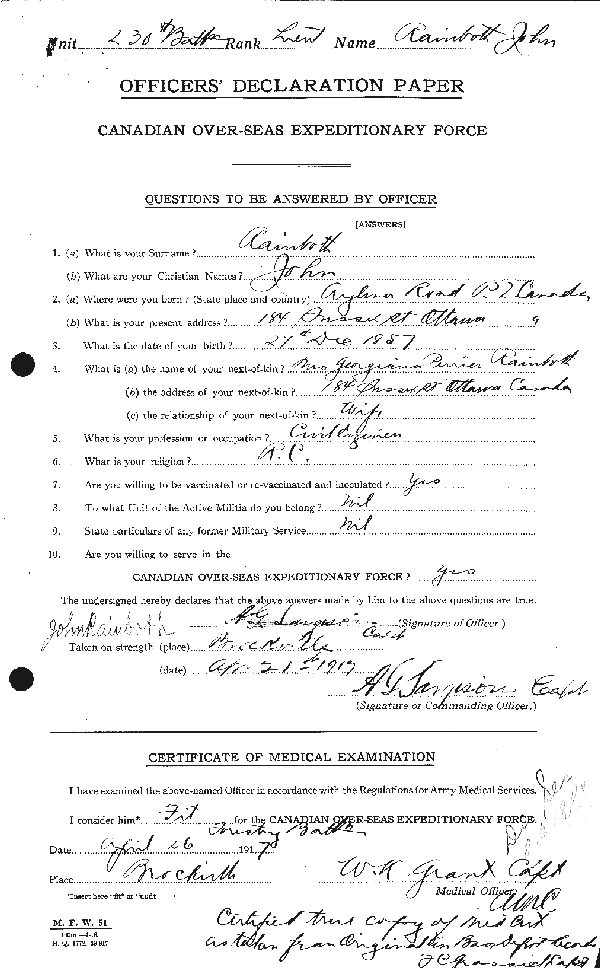 Unit 230th Batt Rank Lieut Name Rainboth John
OFFICERS' DECLARATION PAPER
CANADIAN OVER-SEAS EXPEDITIONARY FORCE
QUESTIONS TO BE ANSWERED BY OFFICER
(ANSWERS)
1. (a) What is your Surname? Rainboth
(b) What are your Christian Names? John
2. (a) Where were you born? (State place and country) Aylmer Road P.Q Canada
(b) What is your present address? 184 St Ottawa
3. What is the date of your birth? 27th Dec 1887
4. What is (a) the name of your next-of-kin? Mrs Georgiana Perrier Rainboth
(b) the address of your next-of-kin? 184 St Ottawa Canada
(c) the relationship of your next-of-kin? Wife
5. What is your profession or occupation? Civil Engineer
6. What is your religion? R.C.
7. Are you willing to be vaccinated or re-vaccinated and inoculated? Yes
8. To what Unit of the Active Militia do you belong? Nil
9. State particulars of any former Military Service. Nil
10. Are you willing to serve in the
CANADIAN OVER-SEAS EXPEDITIONARY FORCE? Yes
The undersigned hereby declares that the above answers made by him to the above questions are true.
John Rainboth A G Sampson Capt (Signature of Officer.)
Taken on strength (place) Brockville
(date) Apr 21st 1917
A G Sampson Capt
(Signature or Commanding Officer.)
CERTIFICATE OF MEDICAL EXAMINATION
I have examined the above-named Officer in accordance with the Regulations for Army Medical Services.
I consider him* Fit for the CANADIAN OVER-SEAS EXPEDITIONARY FORCE.
Forestry Battn
Date April 26 1917
Place Brockville W H Grant Capt
*Insert here "fit" or "unfit" Medical Officer
AMC
M. F. W. 51
H. Q. 1772-39-917
Certified true copy of Med Cert
as taken from Original in Base Depot
Capt